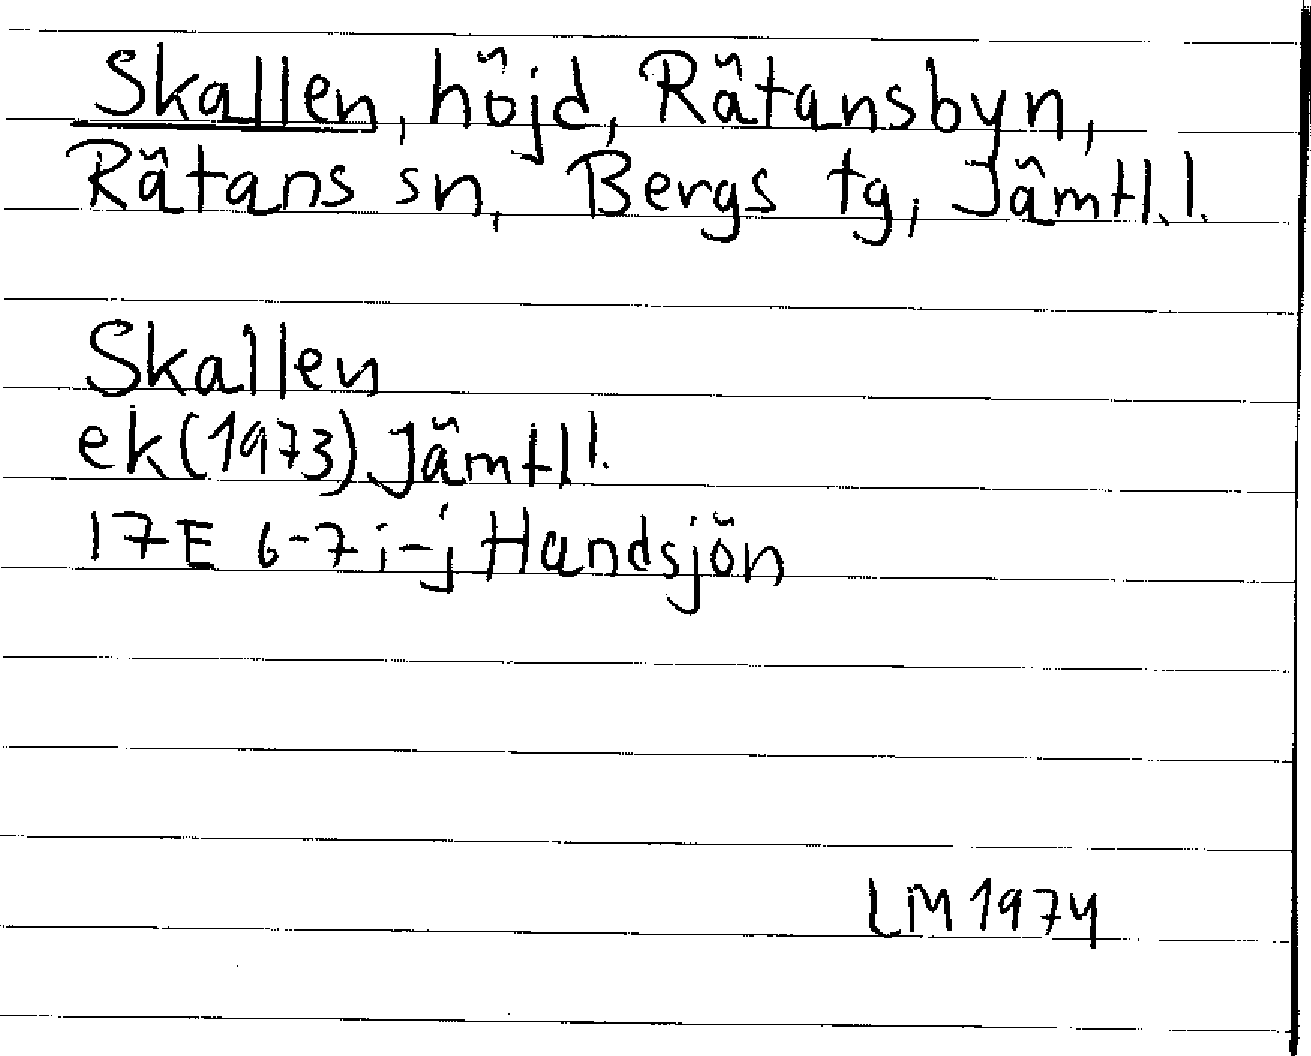 Skallen, höjd, Rätansbyn,
Rätans sn, Bergs tg, Jämtl. l.
Skallen
ek (1973) Jämtl l.
17E 6-7 i-j Handsjön
LM 1974